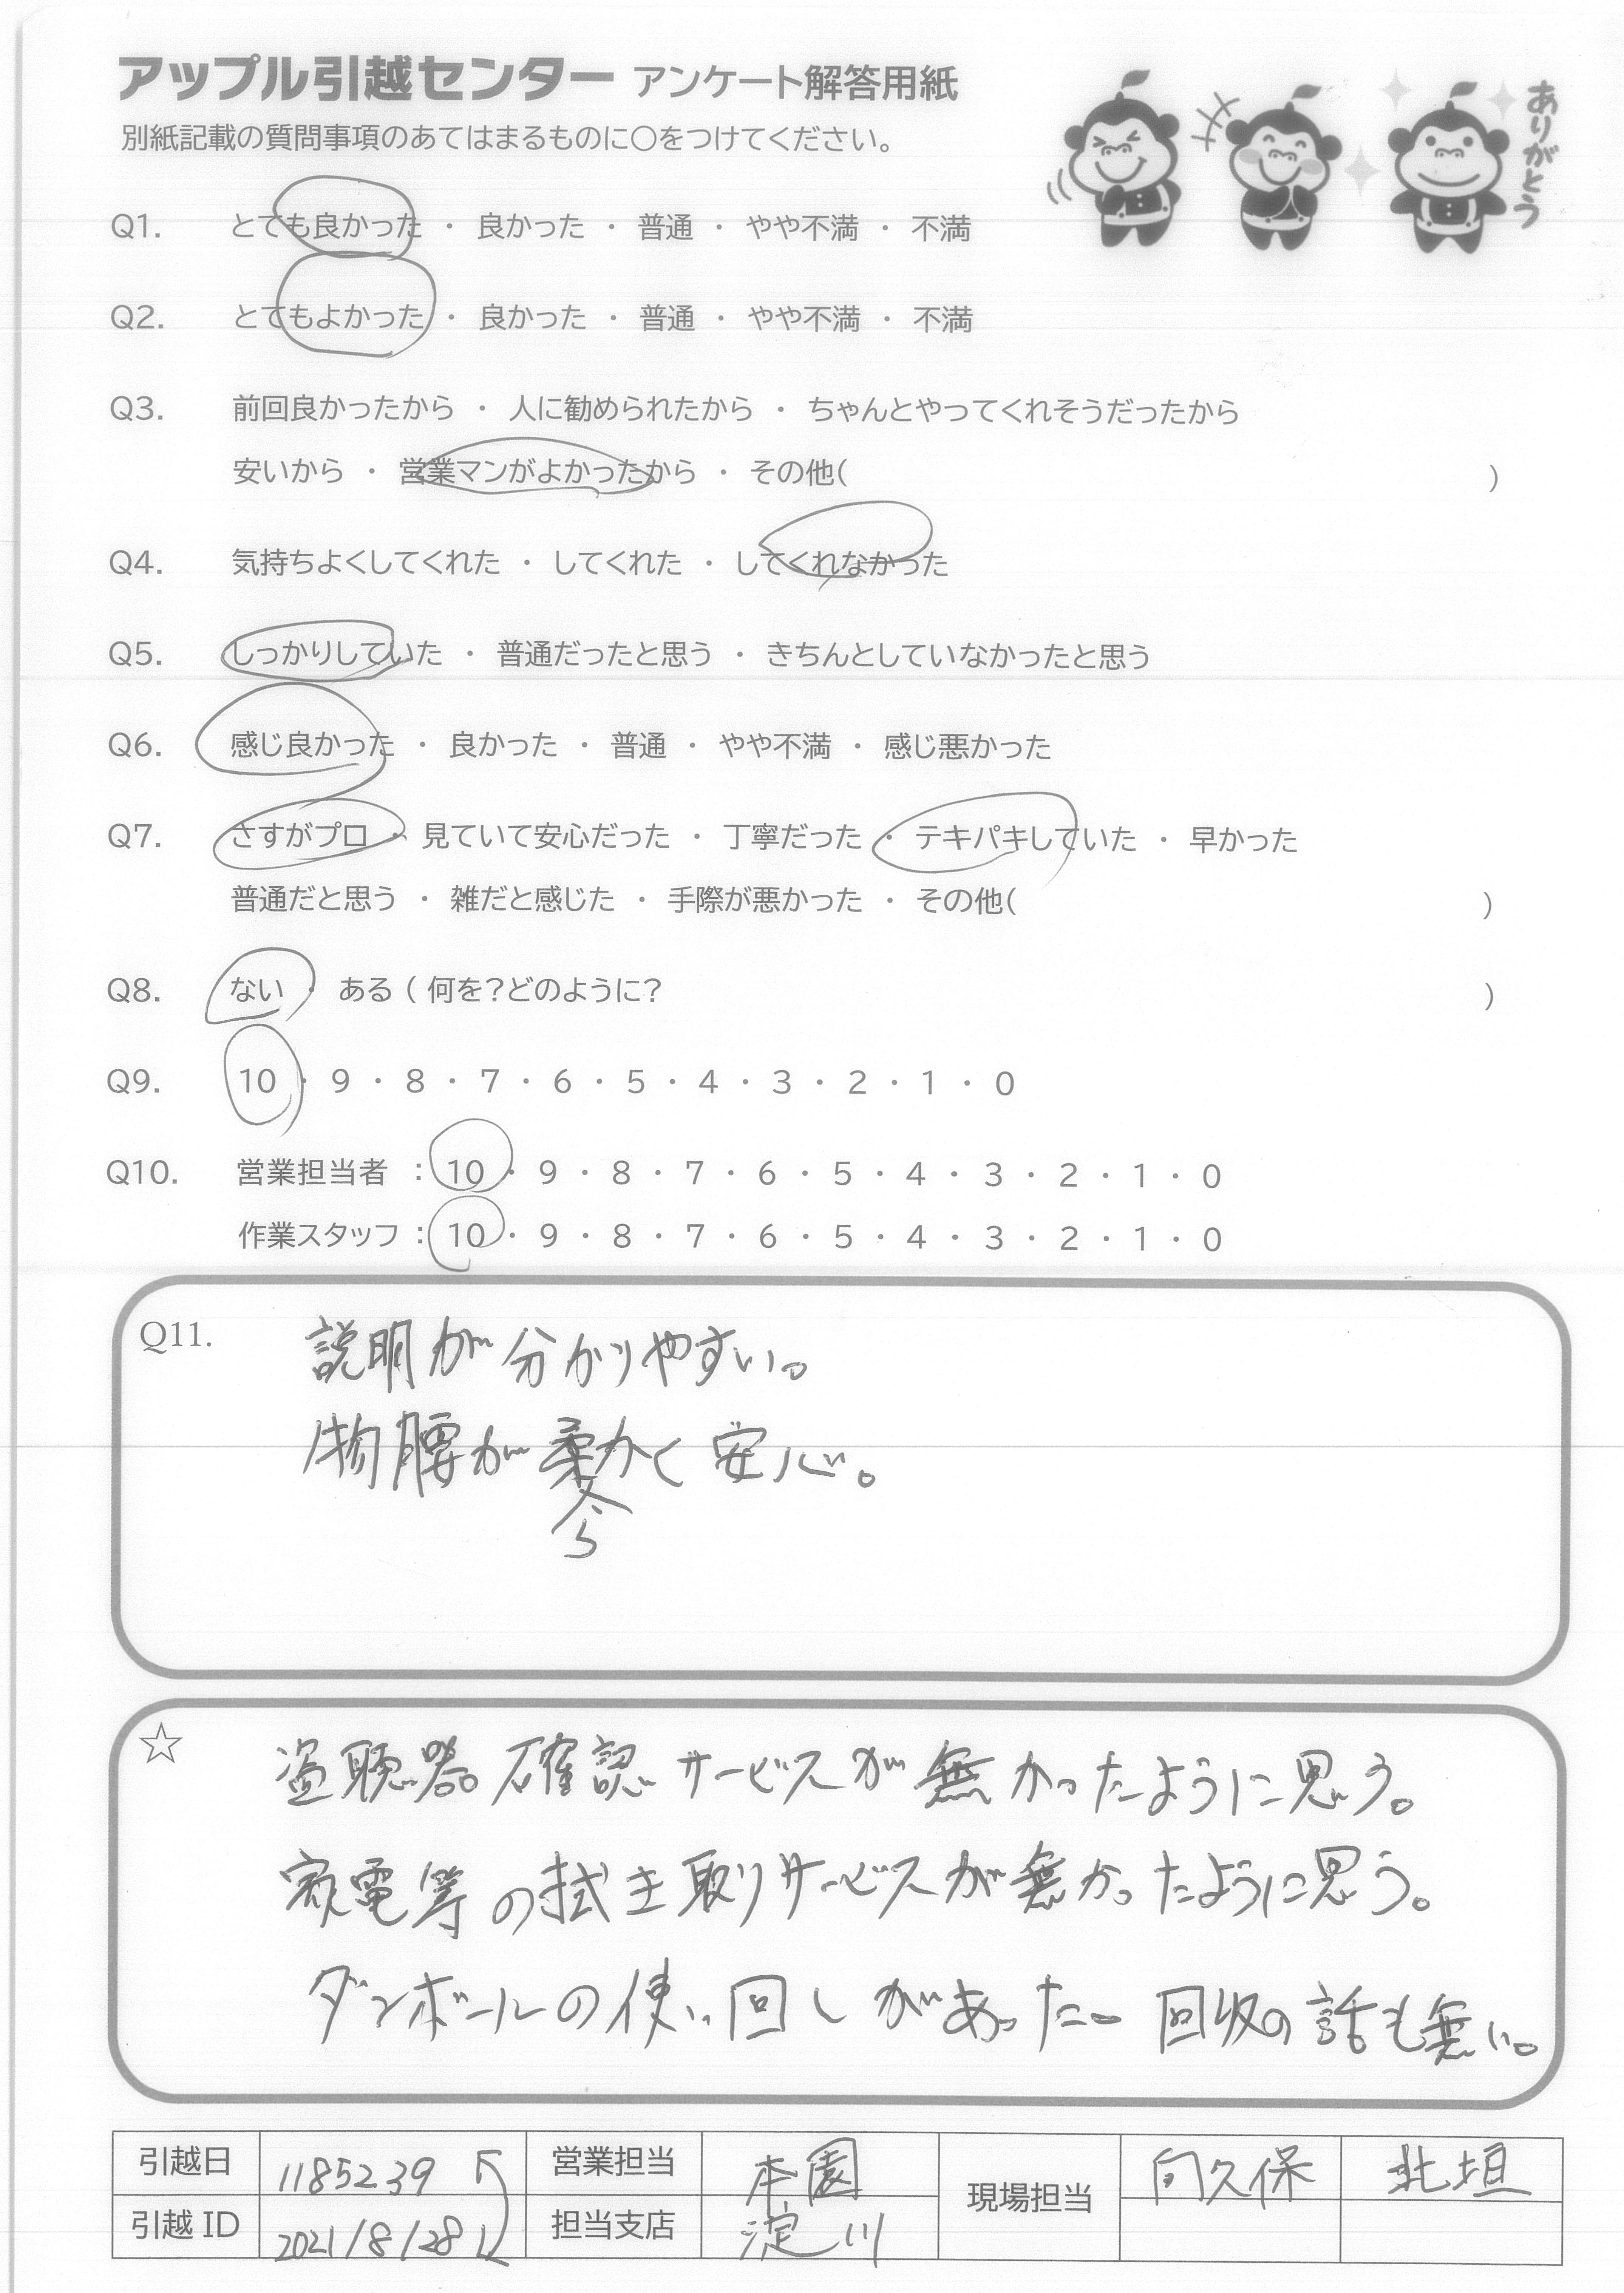 アップル引越センター アンケート解答用紙
ありがとう
別紙記載の質問事項のあてはまるものに○をつけてください。
Q1. とても良かった ・ 良かった ・ 普通 ・ やや不満 ・ 不満
Q2. とてもよかった ・ 良かった ・ 普通 ・ やや不満 ・ 不満
Q3. 前回良かったから ・ 人に勧められたから ・ ちゃんとやってくれそうだったから
安いから ・ 営業マンがよかったから ・ その他( )
Q4. 気持ちよくしてくれた ・ してくれた ・ してくれなかった
Q5. しっかりしていた ・ 普通だったと思う ・ きちんとしていなかったと思う
Q6. 感じ良かった ・ 良かった ・ 普通 ・ やや不満 ・ 感じ悪かった
Q7. さすがプロ ・ 見ていて安心だった ・ 丁寧だった ・ テキパキしていた ・ 早かった
普通だと思う ・ 雑だと感じた ・ 手際が悪かった ・ その他( )
Q8. ない ・ ある ( 何を?どのように? )
Q9. 10 ・ 9 ・ 8 ・ 7 ・ 6 ・ 5 ・ 4 ・ 3 ・ 2 ・ 1 ・ 0
Q10. 営業担当者 : 10 ・ 9 ・ 8 ・ 7 ・ 6 ・ 5 ・ 4 ・ 3 ・ 2 ・ 1 ・ 0
作業スタッフ : 10 ・ 9 ・ 8 ・ 7 ・ 6 ・ 5 ・ 4 ・ 3 ・ 2 ・ 1 ・ 0
Q11. 説明が分かりやすい。
物腰が柔かく安心。
ら
☆ 盗聴器確認サービスが無かったように思う。
家電等の拭き取りサービスが無かったように思う。
ダンボールの使い回しがあった。回収の話も無い。
引越日 1185239 営業担当 本園 現場担当 向久保 北垣
引越 ID 2021/8/28 担当支店 淀川